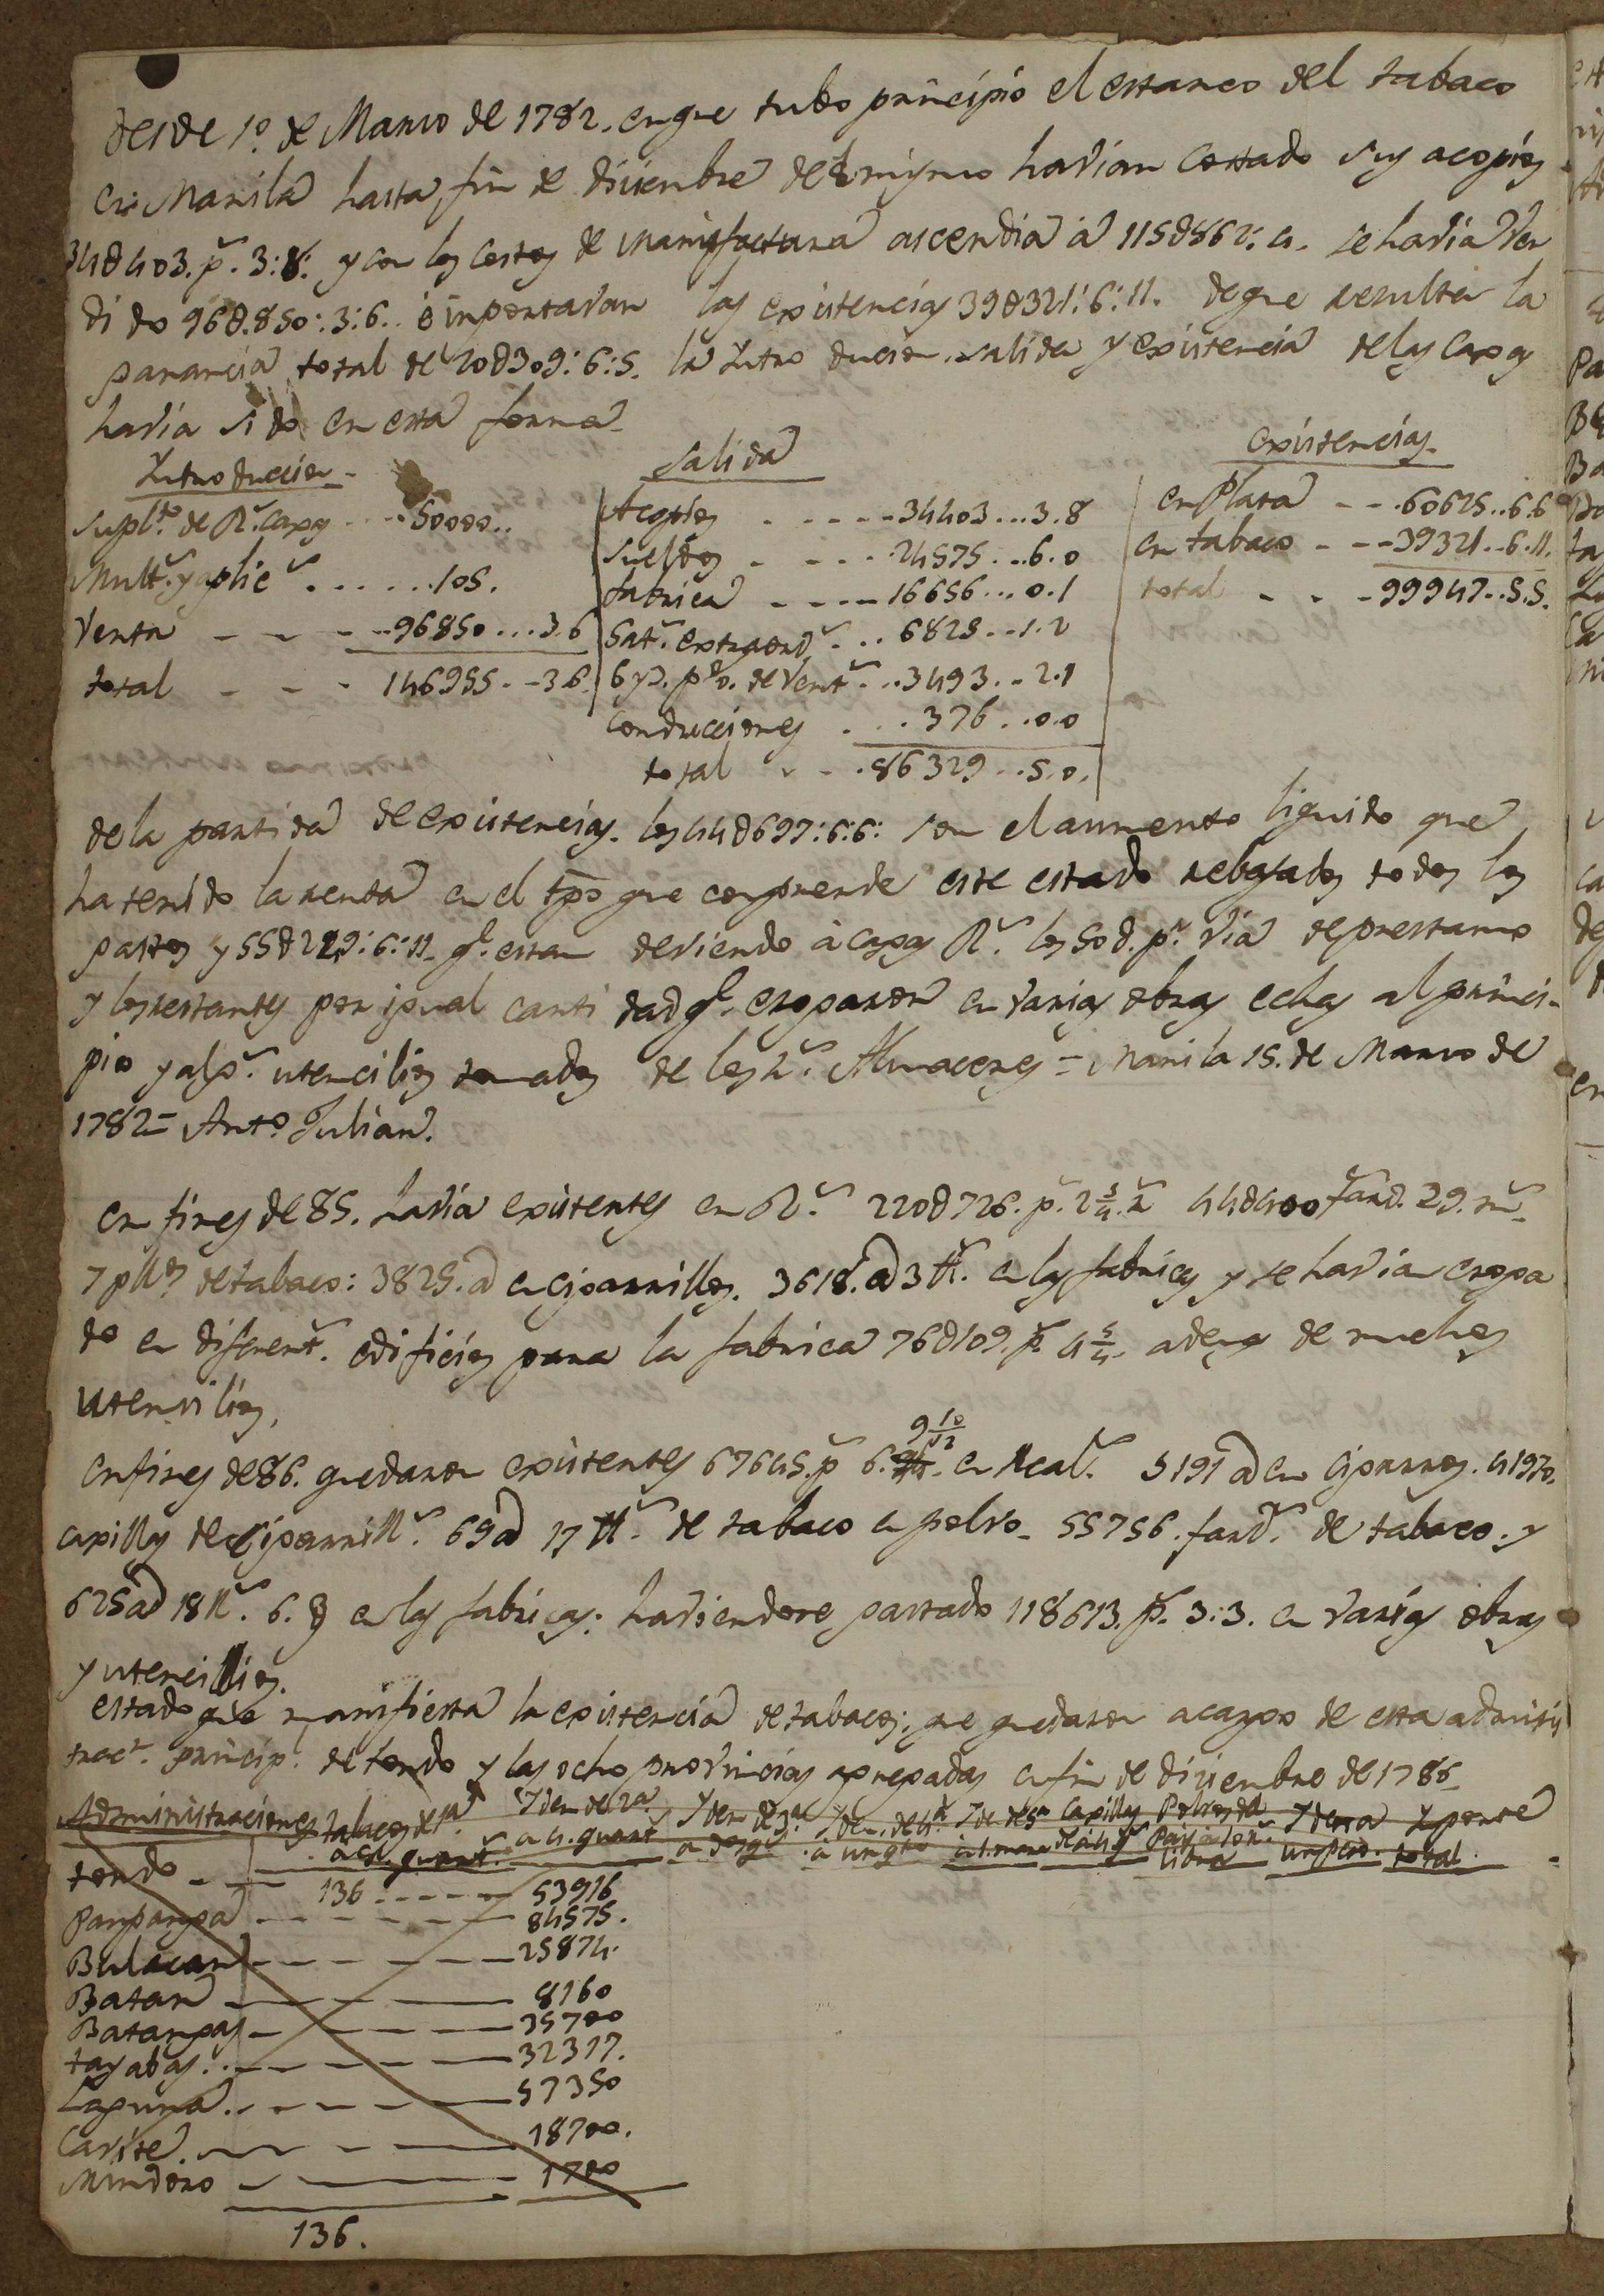 desde 1º. de Marzo de 1782. enque tubo principio el estanco del tabaco
en Manila hasta fin de diciembre del mismo havian costado sus acopios
34∂403. ps. 3:8: y con los costos de manufactura ascendia á 115∂862: 4. se havia ven
dido 96∂.850:3:6.. é importavan las existencias 39∂321:6:11. deque resulta la
ganancia total de 20∂309:6:5. la Introducion salida y existencia delas Caxas
havia sido en esta forma
Introduccion
Suplto. de Rs. Caxas - - - 50000..
Mults. y aplics. . . . . . 105.
Venta - - - - 96850...3.6
total - - - 146955..3.6.
Salida
Acopios - - - - 34403...3.8
Sueldos - - - - 24575...6.0
fabrica - - - - 16656...0.1
Gats. extraords. . . 6825..1.2
6 y 3. p%. de Vents. . . 3493..2.1
Conducciones . . . 376..0.0
total - - - 86329..5.0.
existencias
en Plata - - - 60625..6.6
en tabaco - - - 39321..6.11.
total - - - 99947..5.5.
dela partida de existencias. los 44∂697:6:6: son el aumento liquido que
ha tenido la renta en el tpo que comprende este estado rebajados todos los
gastos y 55∂229:6:11. q. estan deviendo à caxas Rs. los 50∂. ps. via de prestamo
y los restantes por igual cantidad q. erogaron en varias obras echas al princi-
pio y algs. utencilios tomados de los Rs. Almacenes = Manila 15. de Marzo de
1782 = Anto. Julian.
en fines de 85. havia existentes en Rs. 220∂726. ps. 2 5/4. 44∂400 fard. 29. ms.
7 pllos de tabaco: 3825. @ en cigarrillos. 3618. @ 3 ℔. en las fabricas y se havian eroga
do en diferents. edificios para la fabrica 76∂109. ps. 4 5/4. ademas de muchos
utensilios,
en fines de 86. quedaron existentes 67645. ps 6. 9 10/12 en Reals. 5191 @ en cigarros. 41970.
caxillas de cigarrills. 69 @ 17 ℔s. de tabaco en polvo - 55756. fards. de tabaco. y
625 @ 18 lls. 6. en las fabricas: haviendose gastado 118613. ps. 3:3. en varias obras
y utencilios.
estado que manifiesta la existencia de tabacos, que quedaron a cargo de esta adminis
tracn. princip. de tondo y las ocho provincias agregadas en fin de diciembre de 1786
Administraciones tabacos de 1ª. Idem de 2ª. Idem de 3ª. Idem. de 4ª. Idem de 5ª Caxillas Polvos del Idem a Ymporte
a 4. quart. Pais libra total.
tondo - - - 136 - - - - 53916
Panpanga - - - - - - 84575.
Bulacan - - - - - - 25874.
Batan - - - - 8160
Batangas - - - - - 35700
tayabas. - - - - - 32317.
Laguna - - - - - 57350
Cavite. - - - - 18700.
Mindoro - - - 1700
136.